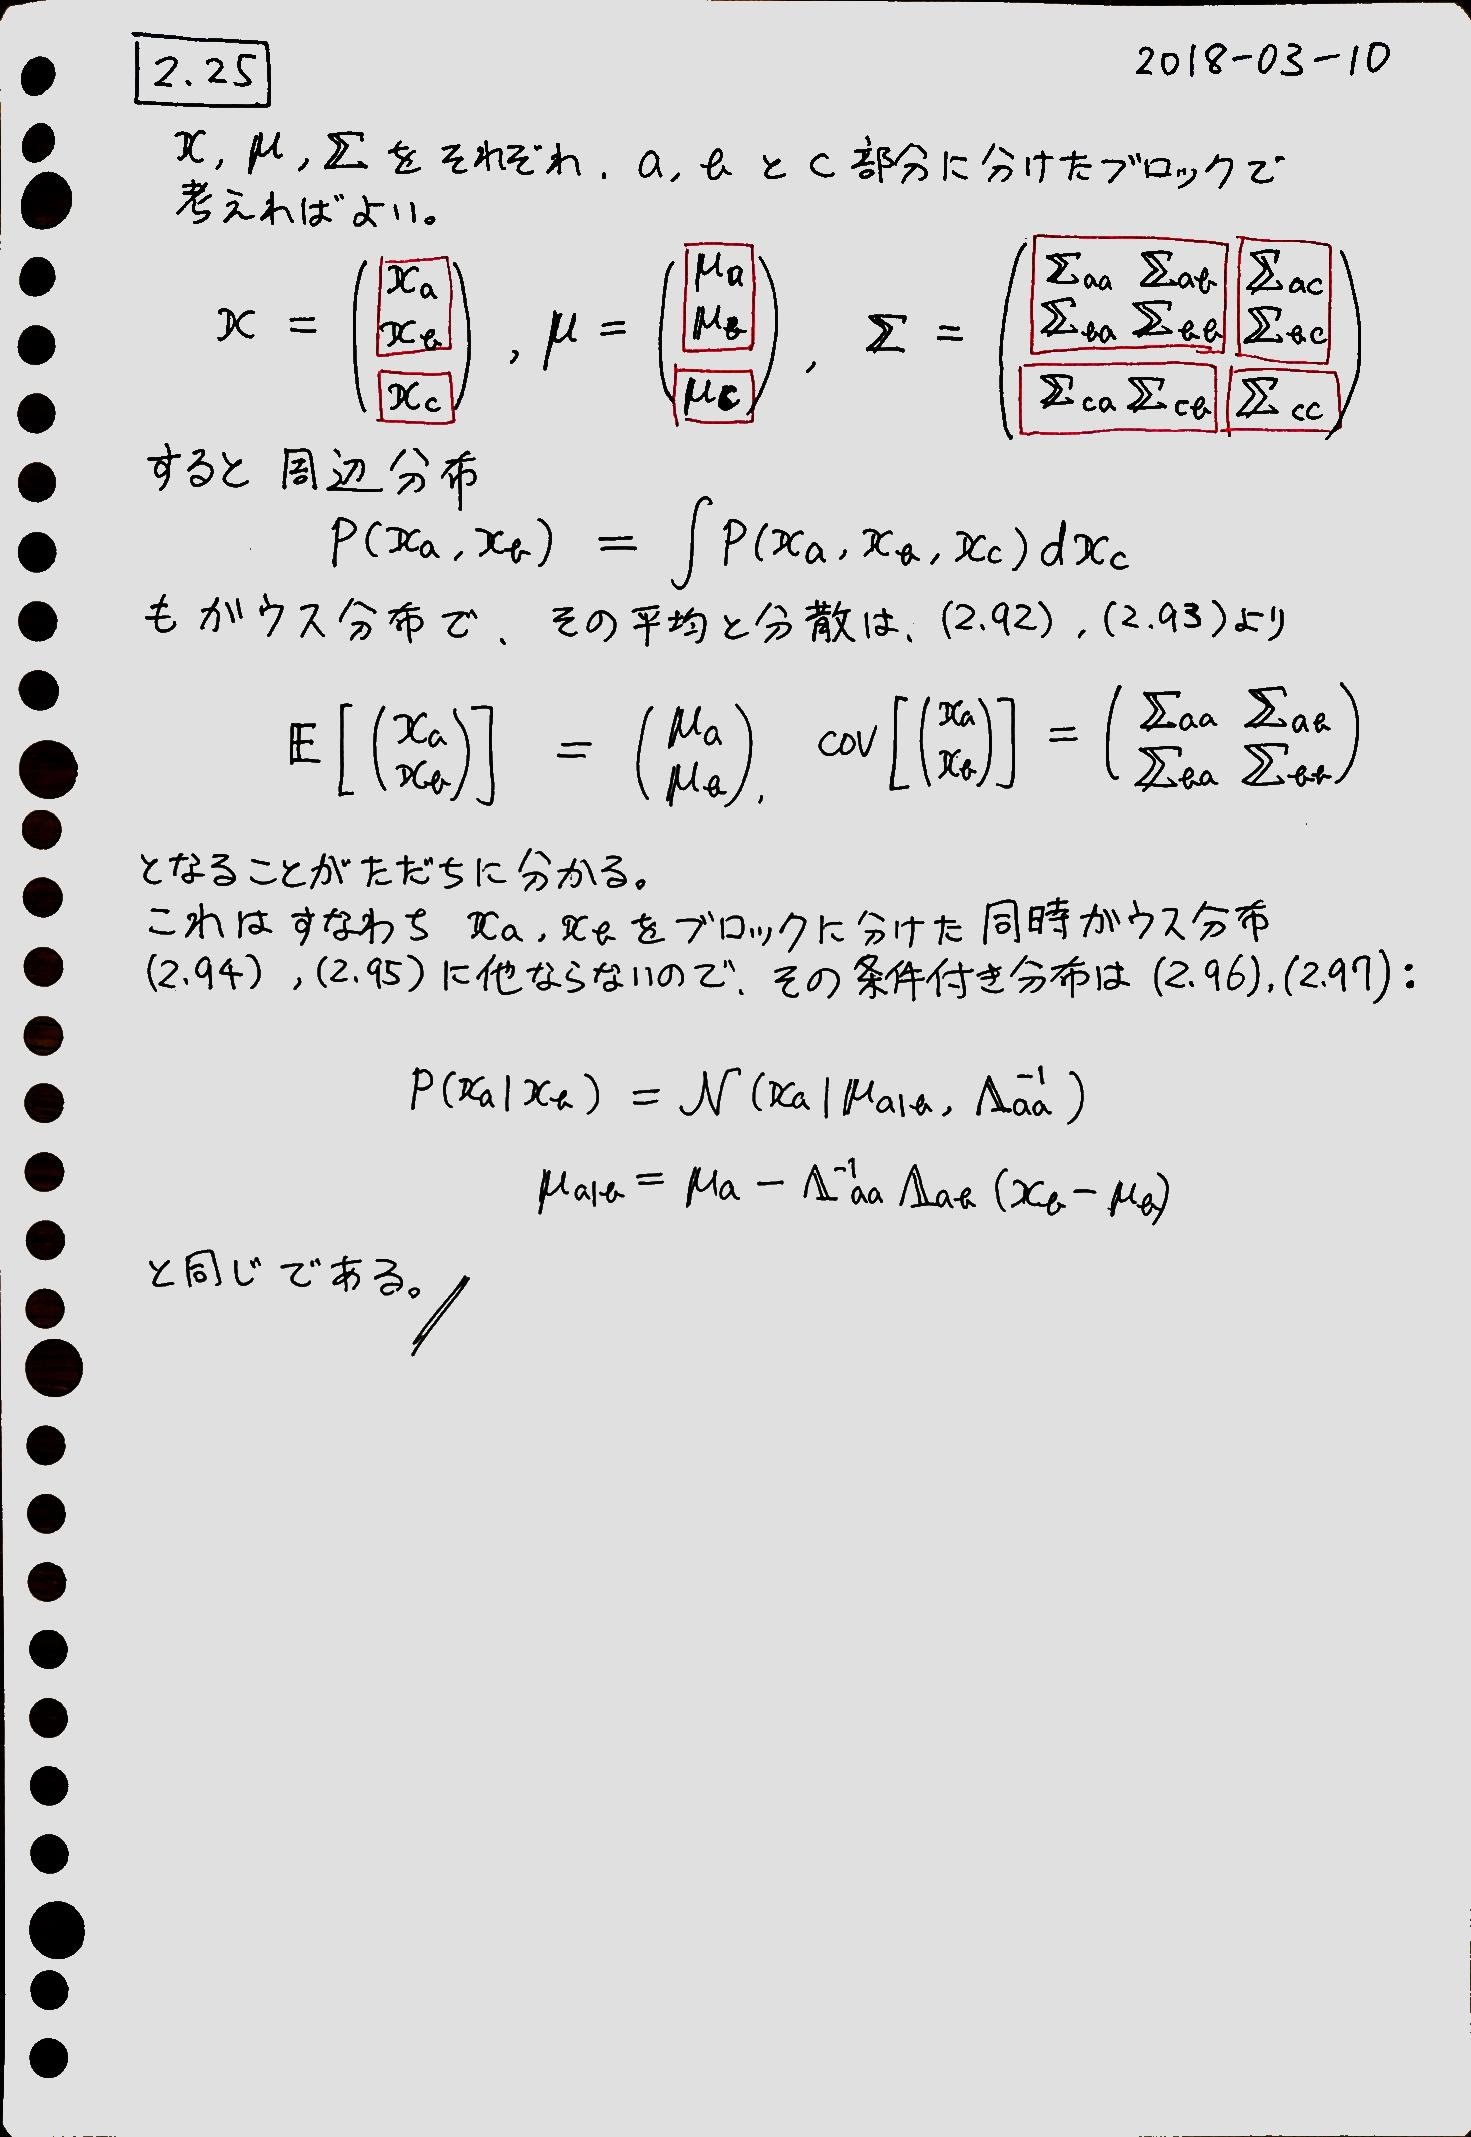 2.25
2018-03-10
x, μ, Σ をそれぞれ、a, b と c 部分に分けたブロックで
考えればよい。
x = (x_a x_b x_c), μ = (μ_a μ_b μ_c), Σ = (Σ_aa Σ_ab Σ_ac Σ_ba Σ_bb Σ_bc Σ_ca Σ_cb Σ_cc)
すると 周辺分布
P(x_a, x_b) = ∫ P(x_a, x_b, x_c) dx_c
もガウス分布で、その平均と分散は、(2.92), (2.93)より
𝔼[(x_a x_b)] = (μ_a μ_b), cov[(x_a x_b)] = (Σ_aa Σ_ab Σ_ba Σ_bb)
となることがただちに分かる。
これはすなわち x_a, x_b をブロックに分けた同時ガウス分布
(2.94), (2.95)に他ならないので、その条件付き分布は (2.96), (2.97):
P(x_a|x_b) = 𝒩(x_a|μ_a|b, Λ_aa^-1)
μ_a|b = μ_a - Λ^-1_aa Λ_ab (x_b - μ_b)
と同じである。